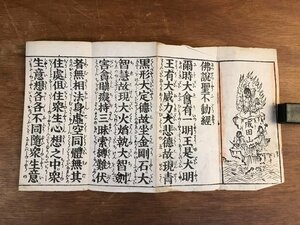 佛說聖不動經
爾時大會有一明王是大明
王有大威力大悲德故現青
黑形大定德故坐金剛石大
智慧故現大火焰執大智劍
害貪瞋癡持三昧索縛難伏
者無相法身虛空同體無其
住處但住衆生心想之中衆
生意想各各不同隨衆生意
成田